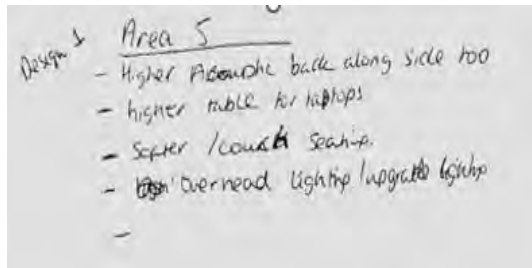 Design 1
Area 5
- Higher Acoustic back along side too
- higher table for laptops
- Softer / couch Seating.
- Overhead Lighting / upgrade lighting
-